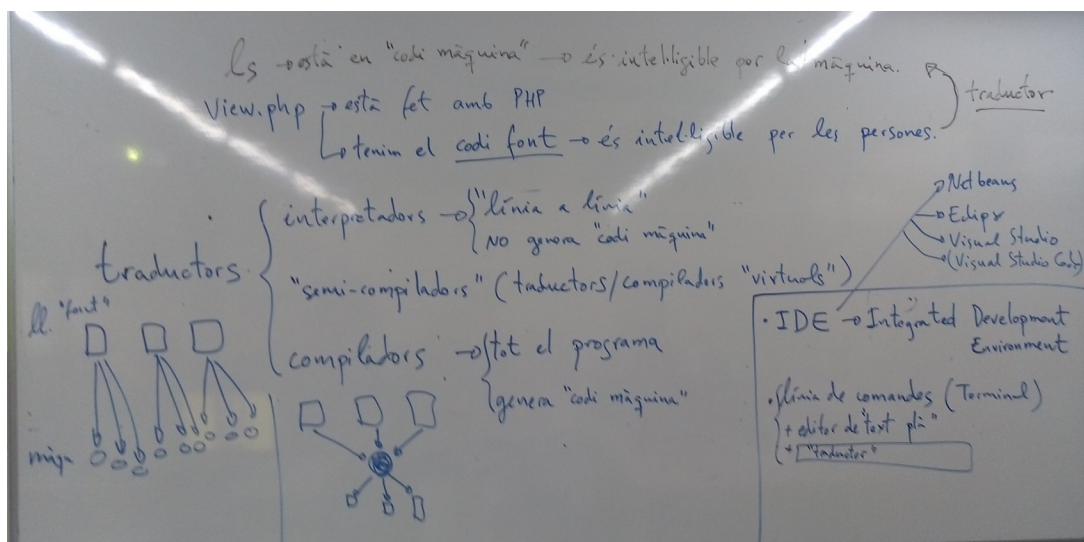 ls → està en "codi màquina" → és intel·ligible por la màquina.
traductor
View.php → està fet amb PHP
→ tenim el codi font → és intel·ligible per les persones.
traductors
interpretadors → "línia a línia"
NO genera "codi màquina"
"semi-compiladors" (traductors/compiladors "virtuals")
compiladors → tot el programa
genera "codi màquina"
ll. "font"
màq.
Netbeans
Eclipse
Visual Studio
(Visual Studio Code)
· IDE → Integrated Development
Environment
· línia de comandes (Terminal)
+ editor de "text pla"
+ "traductor"